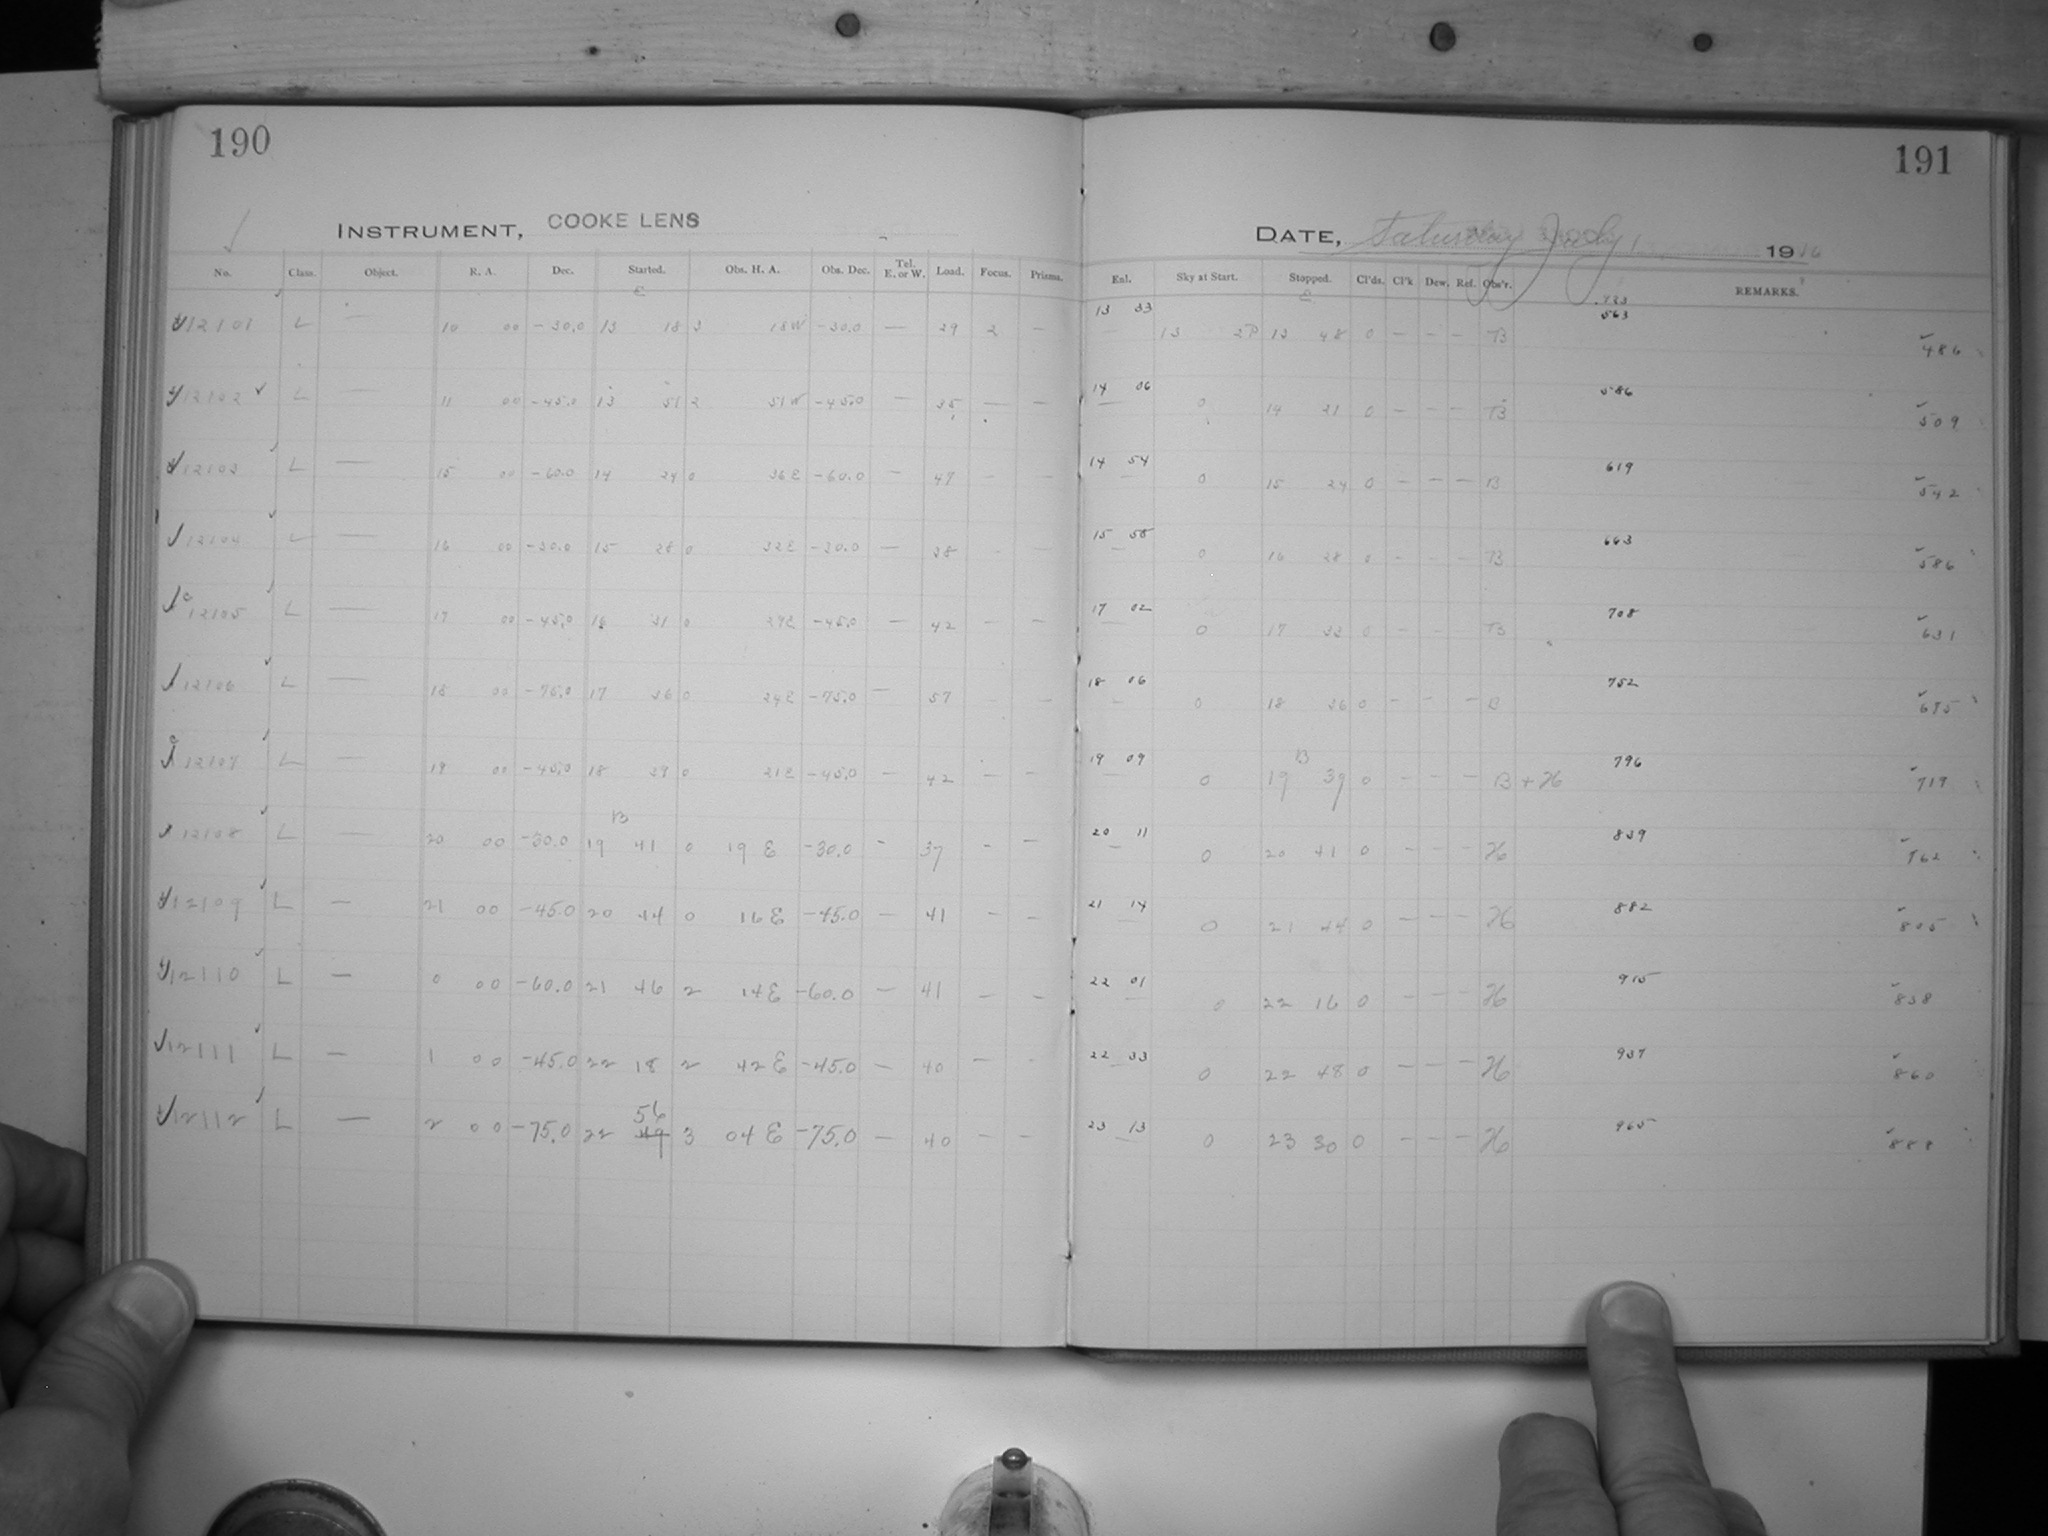 190
191
INSTRUMENT, COOKE LENS
DATE, Saturday July 1 1916
No. Class. Object. R. A. Dec. Started. Obs. H. A. Obs. Dec. Tel. E. or W. Load. Focus. Prisms. Enl. Sky at Start. Stopped. Cl'ds. Cl'k Dew. Ref. Obs'r. REMARKS.
E E
12101 L — 10 00 -30.0 13 18 3 18W -30.0 — 29 2 — 13 33 13 13 48 0 — — — B 563 486
12102 L — 11 00 -45.0 13 51 2 51W -45.0 — 35 — — 14 06 0 14 21 0 — — — B 586 509
12103 L — 15 00 -60.0 14 24 0 36E -60.0 — 47 - - 14 54 0 15 24 0 — — — B 619 542
12104 L — 16 00 -30.0 15 28 0 32E -30.0 — 38 - - 15 58 0 16 28 0 — — — B 663 586
12105 L — 17 00 -45.0 16 31 0 29E -45.0 — 42 - - 17 02 0 17 33 0 — — B 708 631
12106 L — 18 00 -75.0 17 36 0 24E -75.0 — 57 - - 18 06 0 18 36 0 — — — B 752 675
12107 L — 19 00 -45.0 18 39 0 21E -45.0 — 42 - - 19 09 0 19 B 39 0 — — — B + H 796 719
12108 L — 20 00 -30.0 19 B 41 0 19E -30.0 - 37 - - 20 11 0 20 41 0 — — — H 839 762
12109 L — 21 00 -45.0 20 44 0 16E -45.0 — 41 - - 21 14 0 21 44 0 — — — H 882 805
12110 L — 0 00 -60.0 21 46 2 14E -60.0 — 41 - - 22 01 0 22 16 0 — — — H 915 838
12111 L — 1 00 -45.0 22 18 2 42E -45.0 — 40 - - 22 33 0 22 48 0 — — — H 937 860
56
12112 L — 2 00 -75.0 22 49 3 04E -75.0 — 40 - - 23 13 0 23 30 0 — — — H 965 888